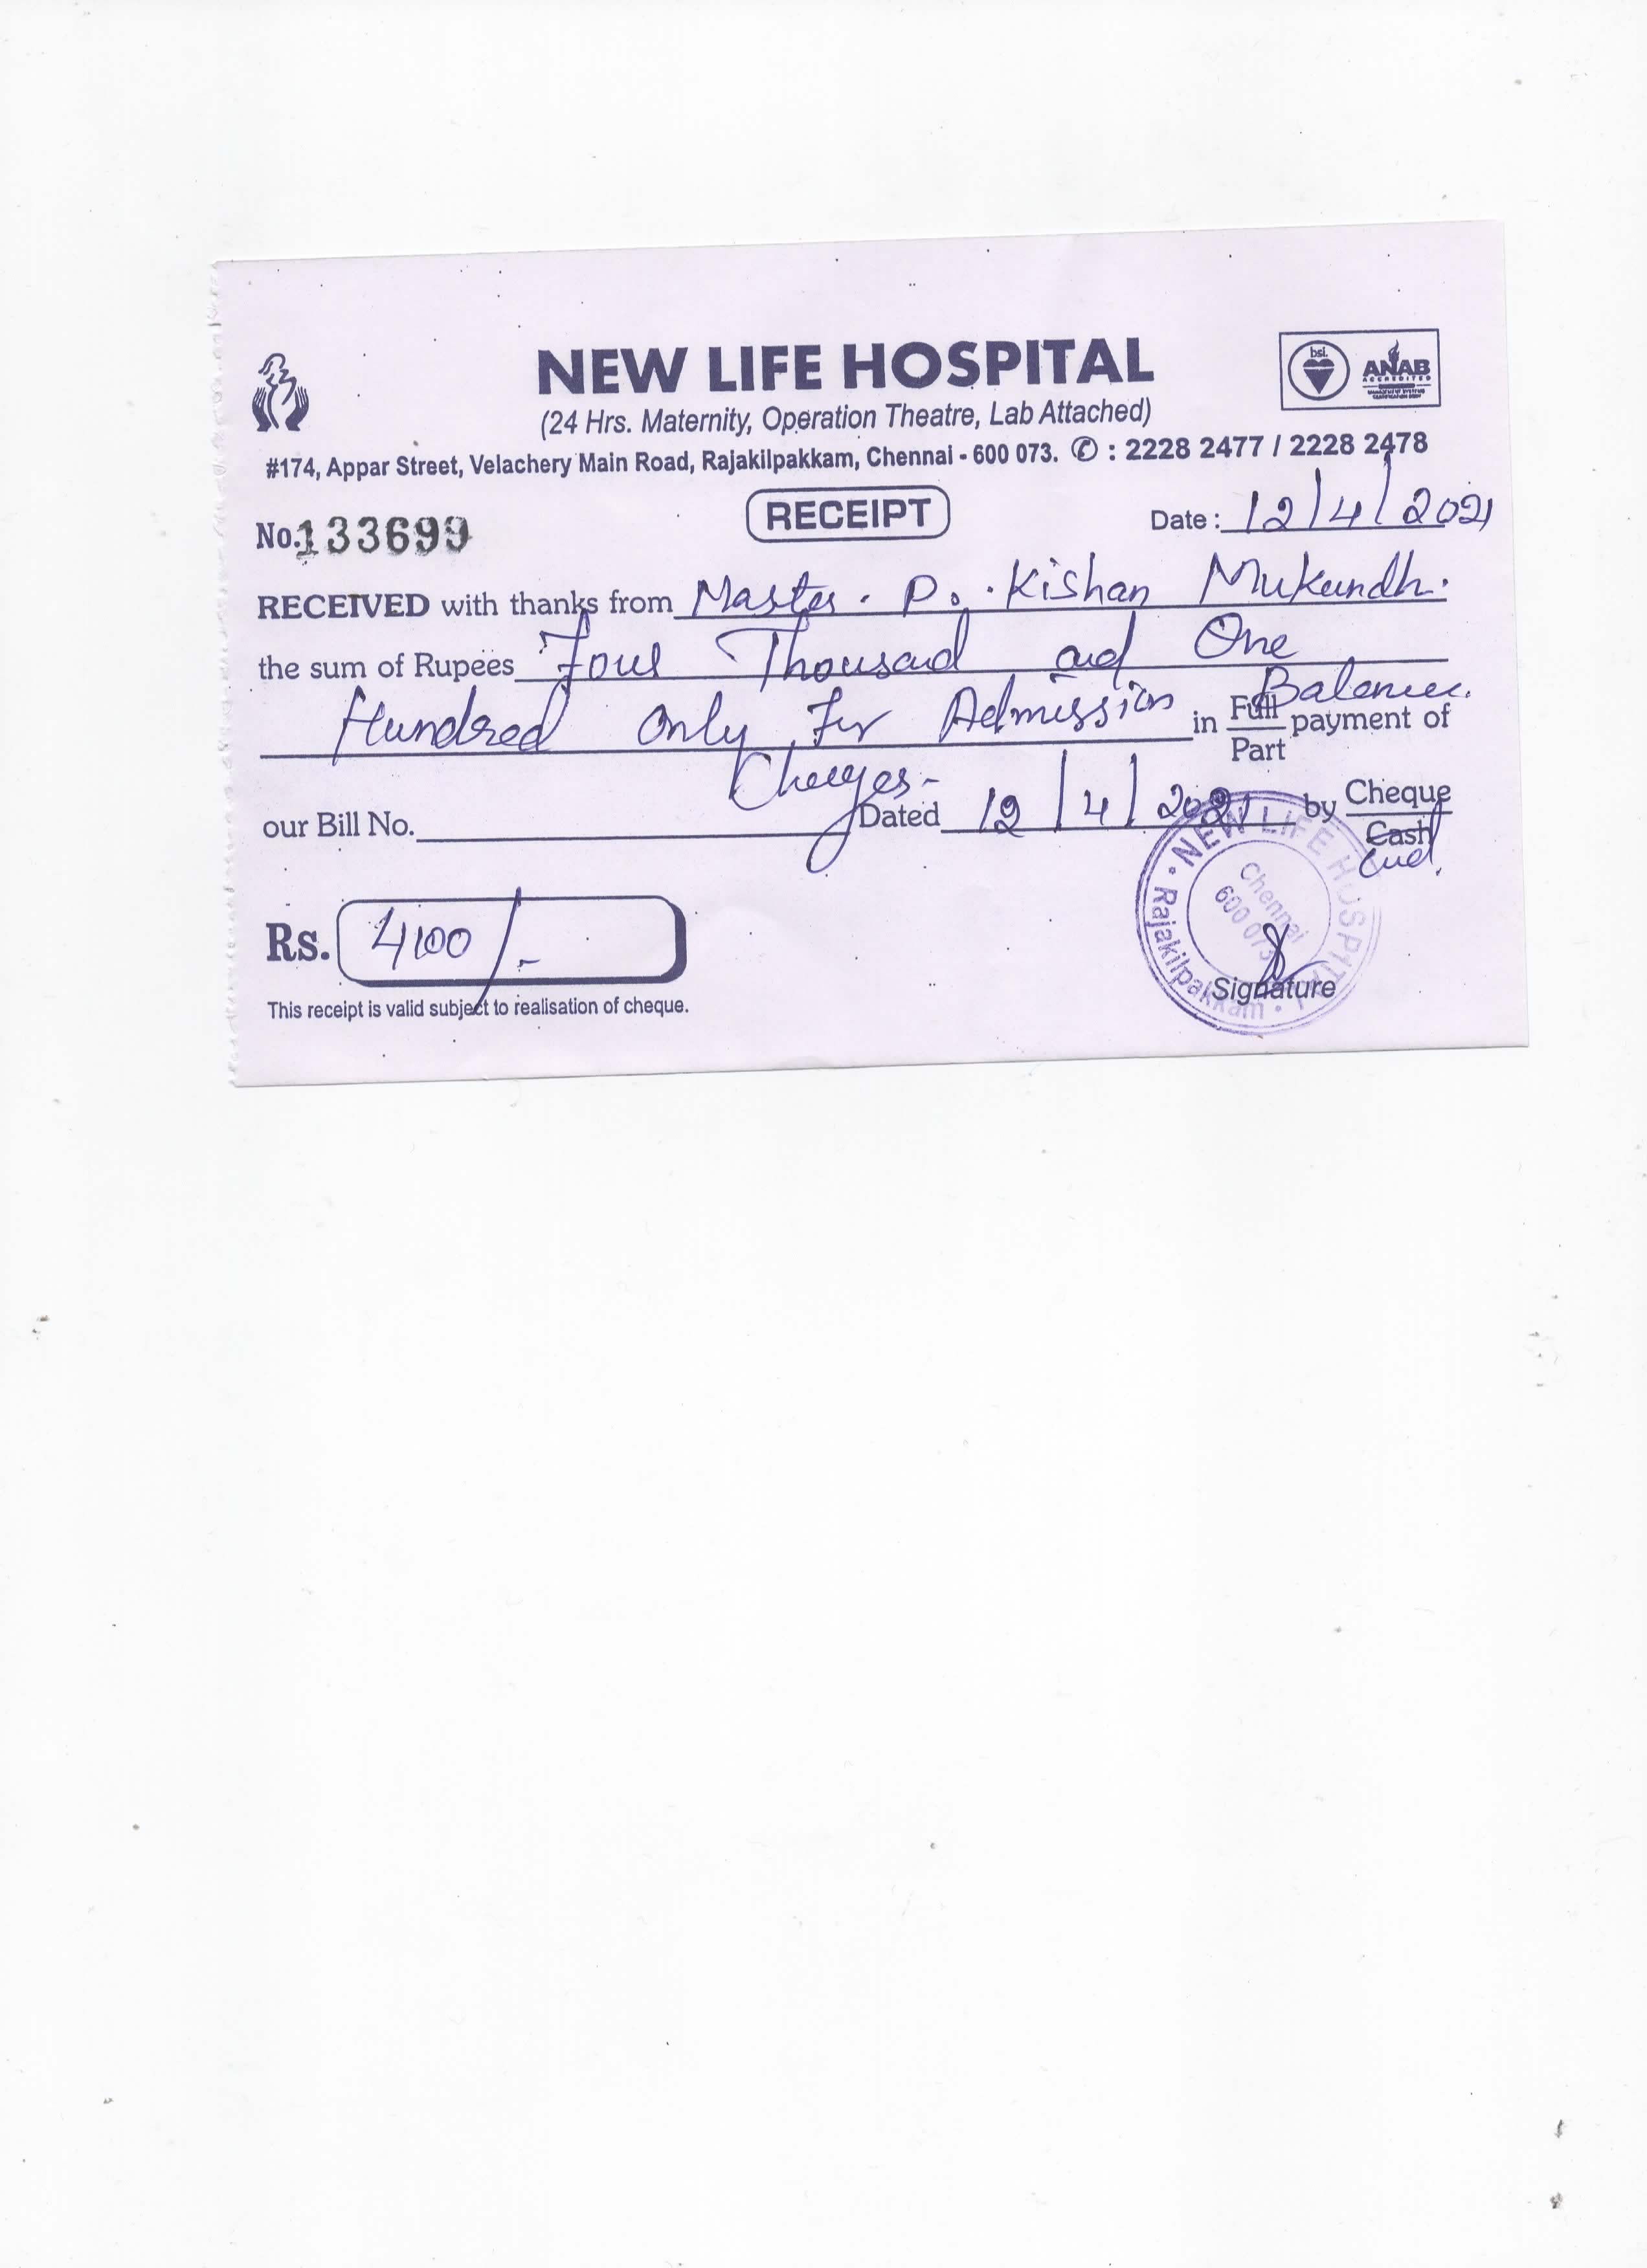 NEW LIFE HOSPITAL
(24 Hrs. Maternity, Operation Theatre, Lab Attached)
#174, Appar Street, Velachery Main Road, Rajakilpakkam, Chennai - 600 073. ✆ : 2228 2477 / 2228 2478
bsi. ANAB
ACCREDITED
RECEIPT
No. 133699
Date : 12/4/2021
RECEIVED with thanks from Master. P. Kishan Mukundh.
the sum of Rupees Four Thousand and One
Hundred Only For Admission in Full Part Balance payment of
Charges-
our Bill No. Dated 12/4/2021 by Cheque Cash
Rs. 4100/-
This receipt is valid subject to realisation of cheque.
NEW LIFE HOSPITAL
Rajakilpakkam
Chennai
600 073
Signature